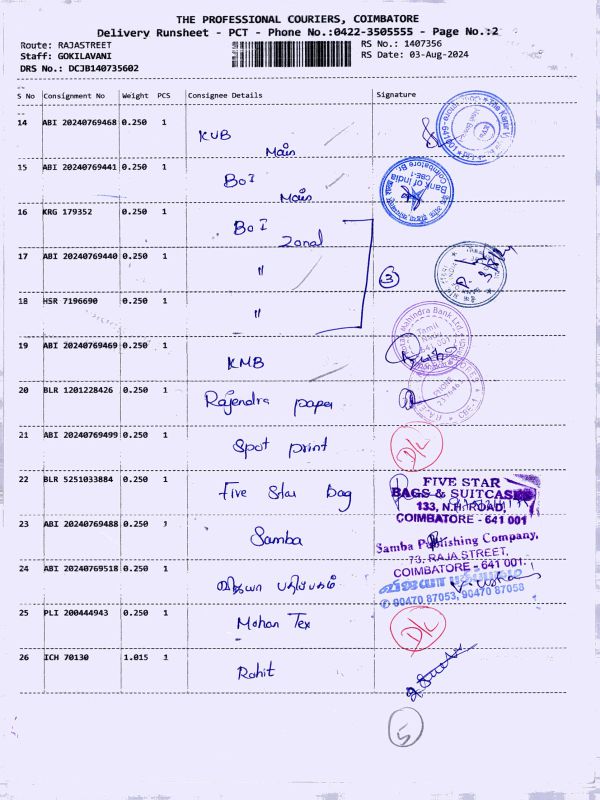 THE PROFESSIONAL COURIERS, COIMBATORE
Delivery Runsheet - PCT - Phone No.:0422-3505555 - Page No.:2
Route: RAJASTREET
RS No.: 1407356
Staff: GOKILAVANI
RS Date: 03-Aug-2024
DRS No.: DCJB140735602
S No Consignment No Weight PCS Consignee Details Signature
14 ABI 20240769468 0.250 1 KUB Main
15 ABI 20240769441 0.250 1 BoI Main
Bank of India
16 KRG 179352 0.250 1 BoI Zonal
17 ABI 20240769440 0.250 1 "
3
18 HSR 7196690 0.250 1 "
Mahindra Bank Ltd
Tamil Nadu
641 001
19 ABI 20240769469 0.250 1 KMB
20 BLR 1201228426 0.250 1 Rajendra paper
PHONE
21 ABI 20240769499 0.250 1 Spot print
D/L
22 BLR 5251033884 0.250 1 Five Star Bag
FIVE STAR
BAGS & SUITCASES
133, N.H. ROAD,
COIMBATORE - 641 001
23 ABI 20240769488 0.250 1 Samba
Samba Publishing Company,
73, RAJA STREET,
COIMBATORE - 641 001.
24 ABI 20240769518 0.250 1 விஜயா பதிப்பகம்
விஜயா பதிப்பகம்
✆ 90470 87053, 90470 87058
25 PLI 200444943 0.250 1 Mohan Tex
D/L
26 ICH 70130 1.015 1 Rohit
5